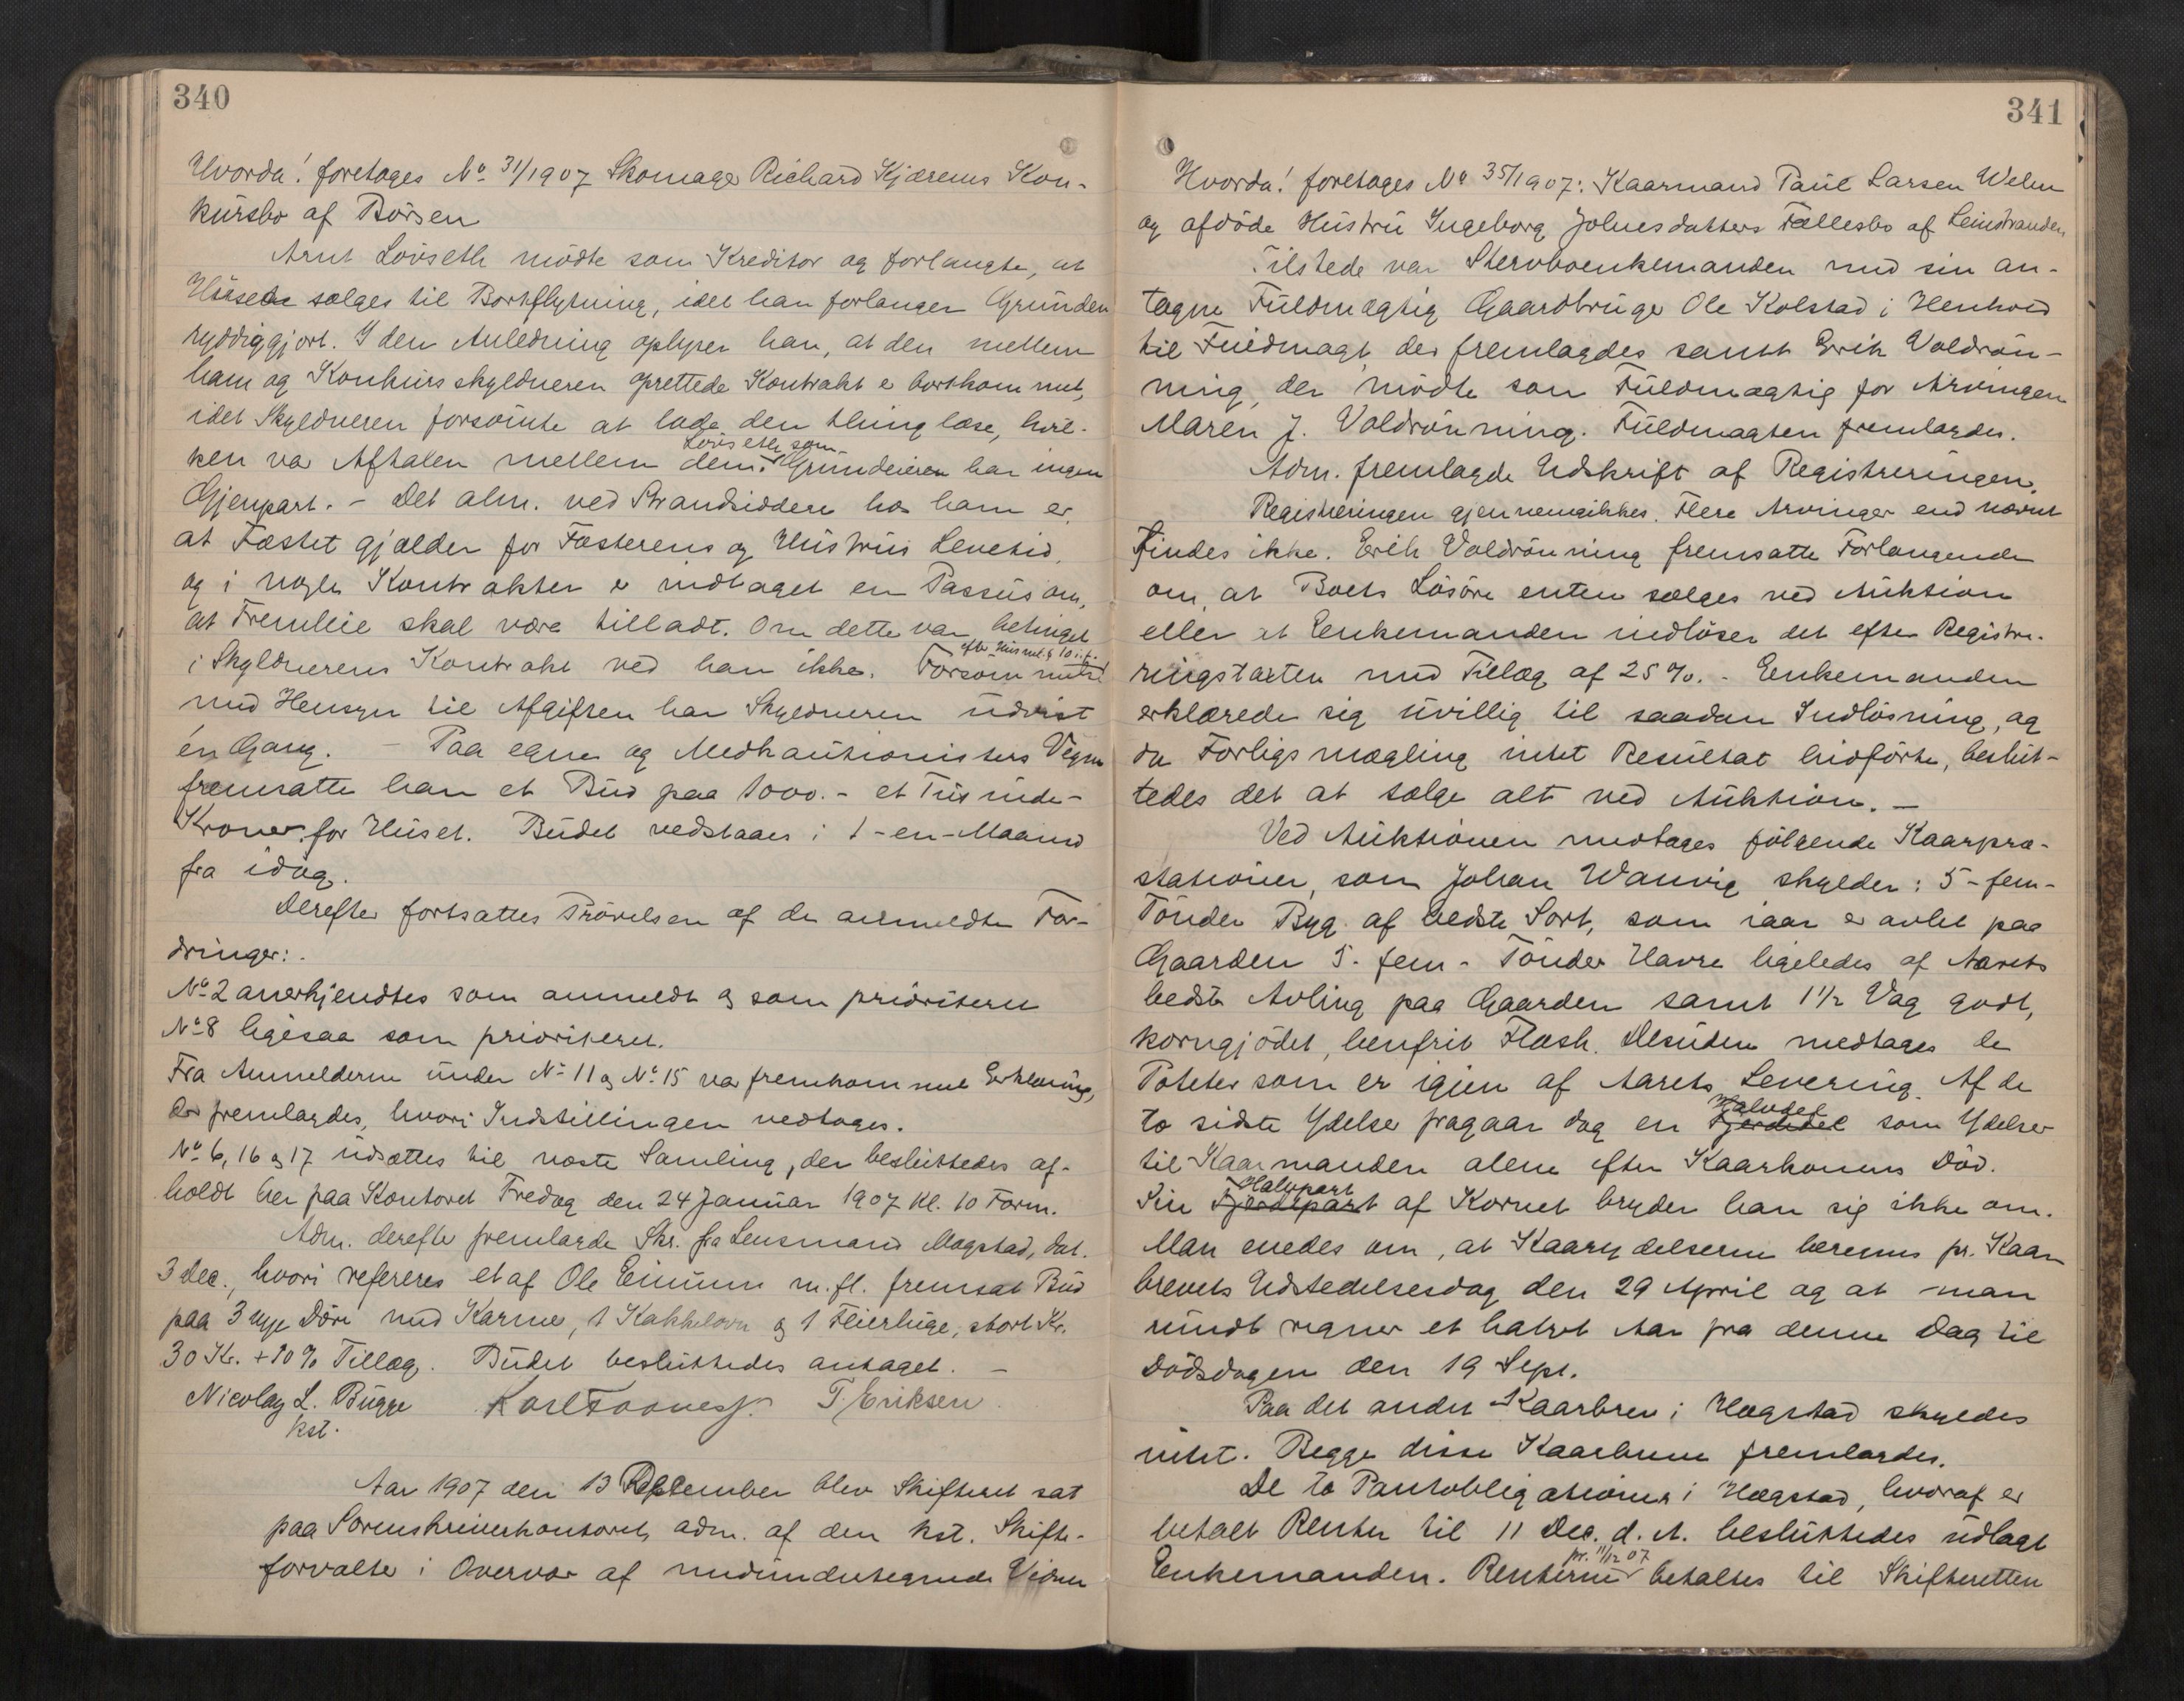 340
Hvorda! foretoges No 31/1907 Skomager Richard Kjærems Kon-
kursbo af Börsen
Arnt Lövseth mödte som Kreditor og forlangte, at
Huset sælges til Bortflytning, idet han forlanger Grunden
ryddiggjort. I den Anledning oplyser han, at den mellem
ham og Konkursskyldneren oprettede Kontrakt er bortkommet,
idet Skyldneren forsömte at lade den thinglæse, hvil-
ken var Aftalen mellem dem. Lövseth som Grundeieren har ingen
Gjenpart. - Det alm. ved Strandsiddere hos ham er,
at Fæstet gjælder for Fæsterens og Hustrus Levetid,
og i nogle Kontrakter er indtaget en Passus om,
at Fremleie skal være tilladt. Om dette var betinget
i Skyldnerens Kontrakt ved han ikke. Forsömmelse efter Husml. § 10 i.f.
med Hensyn til Afgiften har Skyldneren udvist
én Gang. - Paa egne og Medkautionisters Vegne
fremsatte han et Bud paa 1000.- et Tusinde-
Kroner for Huset. Budet vedstaaes i 1-en-Maaned
fra idag.
Derefter fortsattes Prövelsen af de anmeldte For-
dringer:.
No 2 anerkjendtes som anmeldt og som prioriteret
No 8 ligesaa som prioriteret.
Fra Anmelderne under No 11 og No 15 var fremkommet Erklæring,
der fremlagdes, hvori Indstillingen vedtages.
No 6, 16 og 17 udsættes til næste Samling, der besluttedes af-
holdt her paa Kontoret Fredag den 24 Januar 1907 Kl. 10 Form.
Adm. derefter fremlagde Skr. fra Lensmand Mogstad, dat.
3 Dec., hvori refereres et af Ole Einum m.fl. fremsat Bud
paa 3 nye Döre med Karme, 1 Kakkelovn og 1 Feierluge, stort Kr.
30 Kr. + 10% Tillæg. Budet besluttedes antaget. -
Nicolay L. Bugge Karl Foosnæs. T. Eriksen
kst.
Aar 1907 den 13 December blev Skifteret sat
paa Sorenskriverkontoret, adm. af den kst. Skifte-
forvalter i Overvær af medundertegnede Vidner
341
Hvorda! foretages No 35/1907: Kaarmand Paul Larsen Welen
og afdöde Hustru Ingeborg Johnsdatters Fællesbo af Leinstranden
Tilstede var Stervboenkemanden med sin an-
tagne Fuldmægtig Gaardbruger Ole Kolstad i Henhold
til Fuldmagt, der fremlagdes samt Erik Voldrön-
ning, der mödte som Fuldmægtig for Arvingen
Maren J. Voldrönning. Fuldmagten fremlagdes.
Adm. fremlagde Udskrift af Registreringen.
Registreringen gjennemgikkes. Flere Arvinger end nævnt
findes ikke. Erik Voldrönning fremsatte Forlangende
om, at Boets Lösöre enten sælges ved Auktion
eller at Enkemanden indlöser det efter Registre-
ringstaxten med Tillæg af 25%. - Enkemanden
erklærede sig uvillig til saadan Indlösning, og
da Forligsmægling intet Resultat hidförte, beslut-
tedes det at sælge alt ved Auktion. -
Ved Auktionen medtages fölgende Kaarpræ-
stationer, som Johan Wanvig skylder: 5-fem-
Tönder Byg af bedste Sort, som iaar er avlet paa
Gaarden 5- fem- Tönder Havre ligeledes af Aarets
bedste Avling paa Gaarden samt 1 1/2 Vog godt,
korngjödet, benfrit Flesk. Desuden medtages de
Poteter som er igjen af Aarets Levering. Af de
to sidste Ydelser fragaar dog en Fjerdedel Halvdel som Ydelser
til Kaarmanden alene efter Kaarkonens Död.
Sin Fjerdepart Halvpart af Kornet bryder han sig ikke om.
Man enedes om, at Kaarydelserne beregnes pr. Kaar
brevets Udstedelsesdag den 29 April og at man
rundt regner et halvt Aar fra denne Dag til
Dödsdagen den 19 Sept.
Paa det andet Kaarbrev i Hægstad skyldes
intet. Begge disse Kaarbreve fremlagdes.
De to Pantobligationer i Hægstad, hvoraf er
betalt Renter til 11 Dec. d. A. besluttedes udlagt
Enkemanden. Renterne pr. 11/12 07 betaltes til Skifteretten